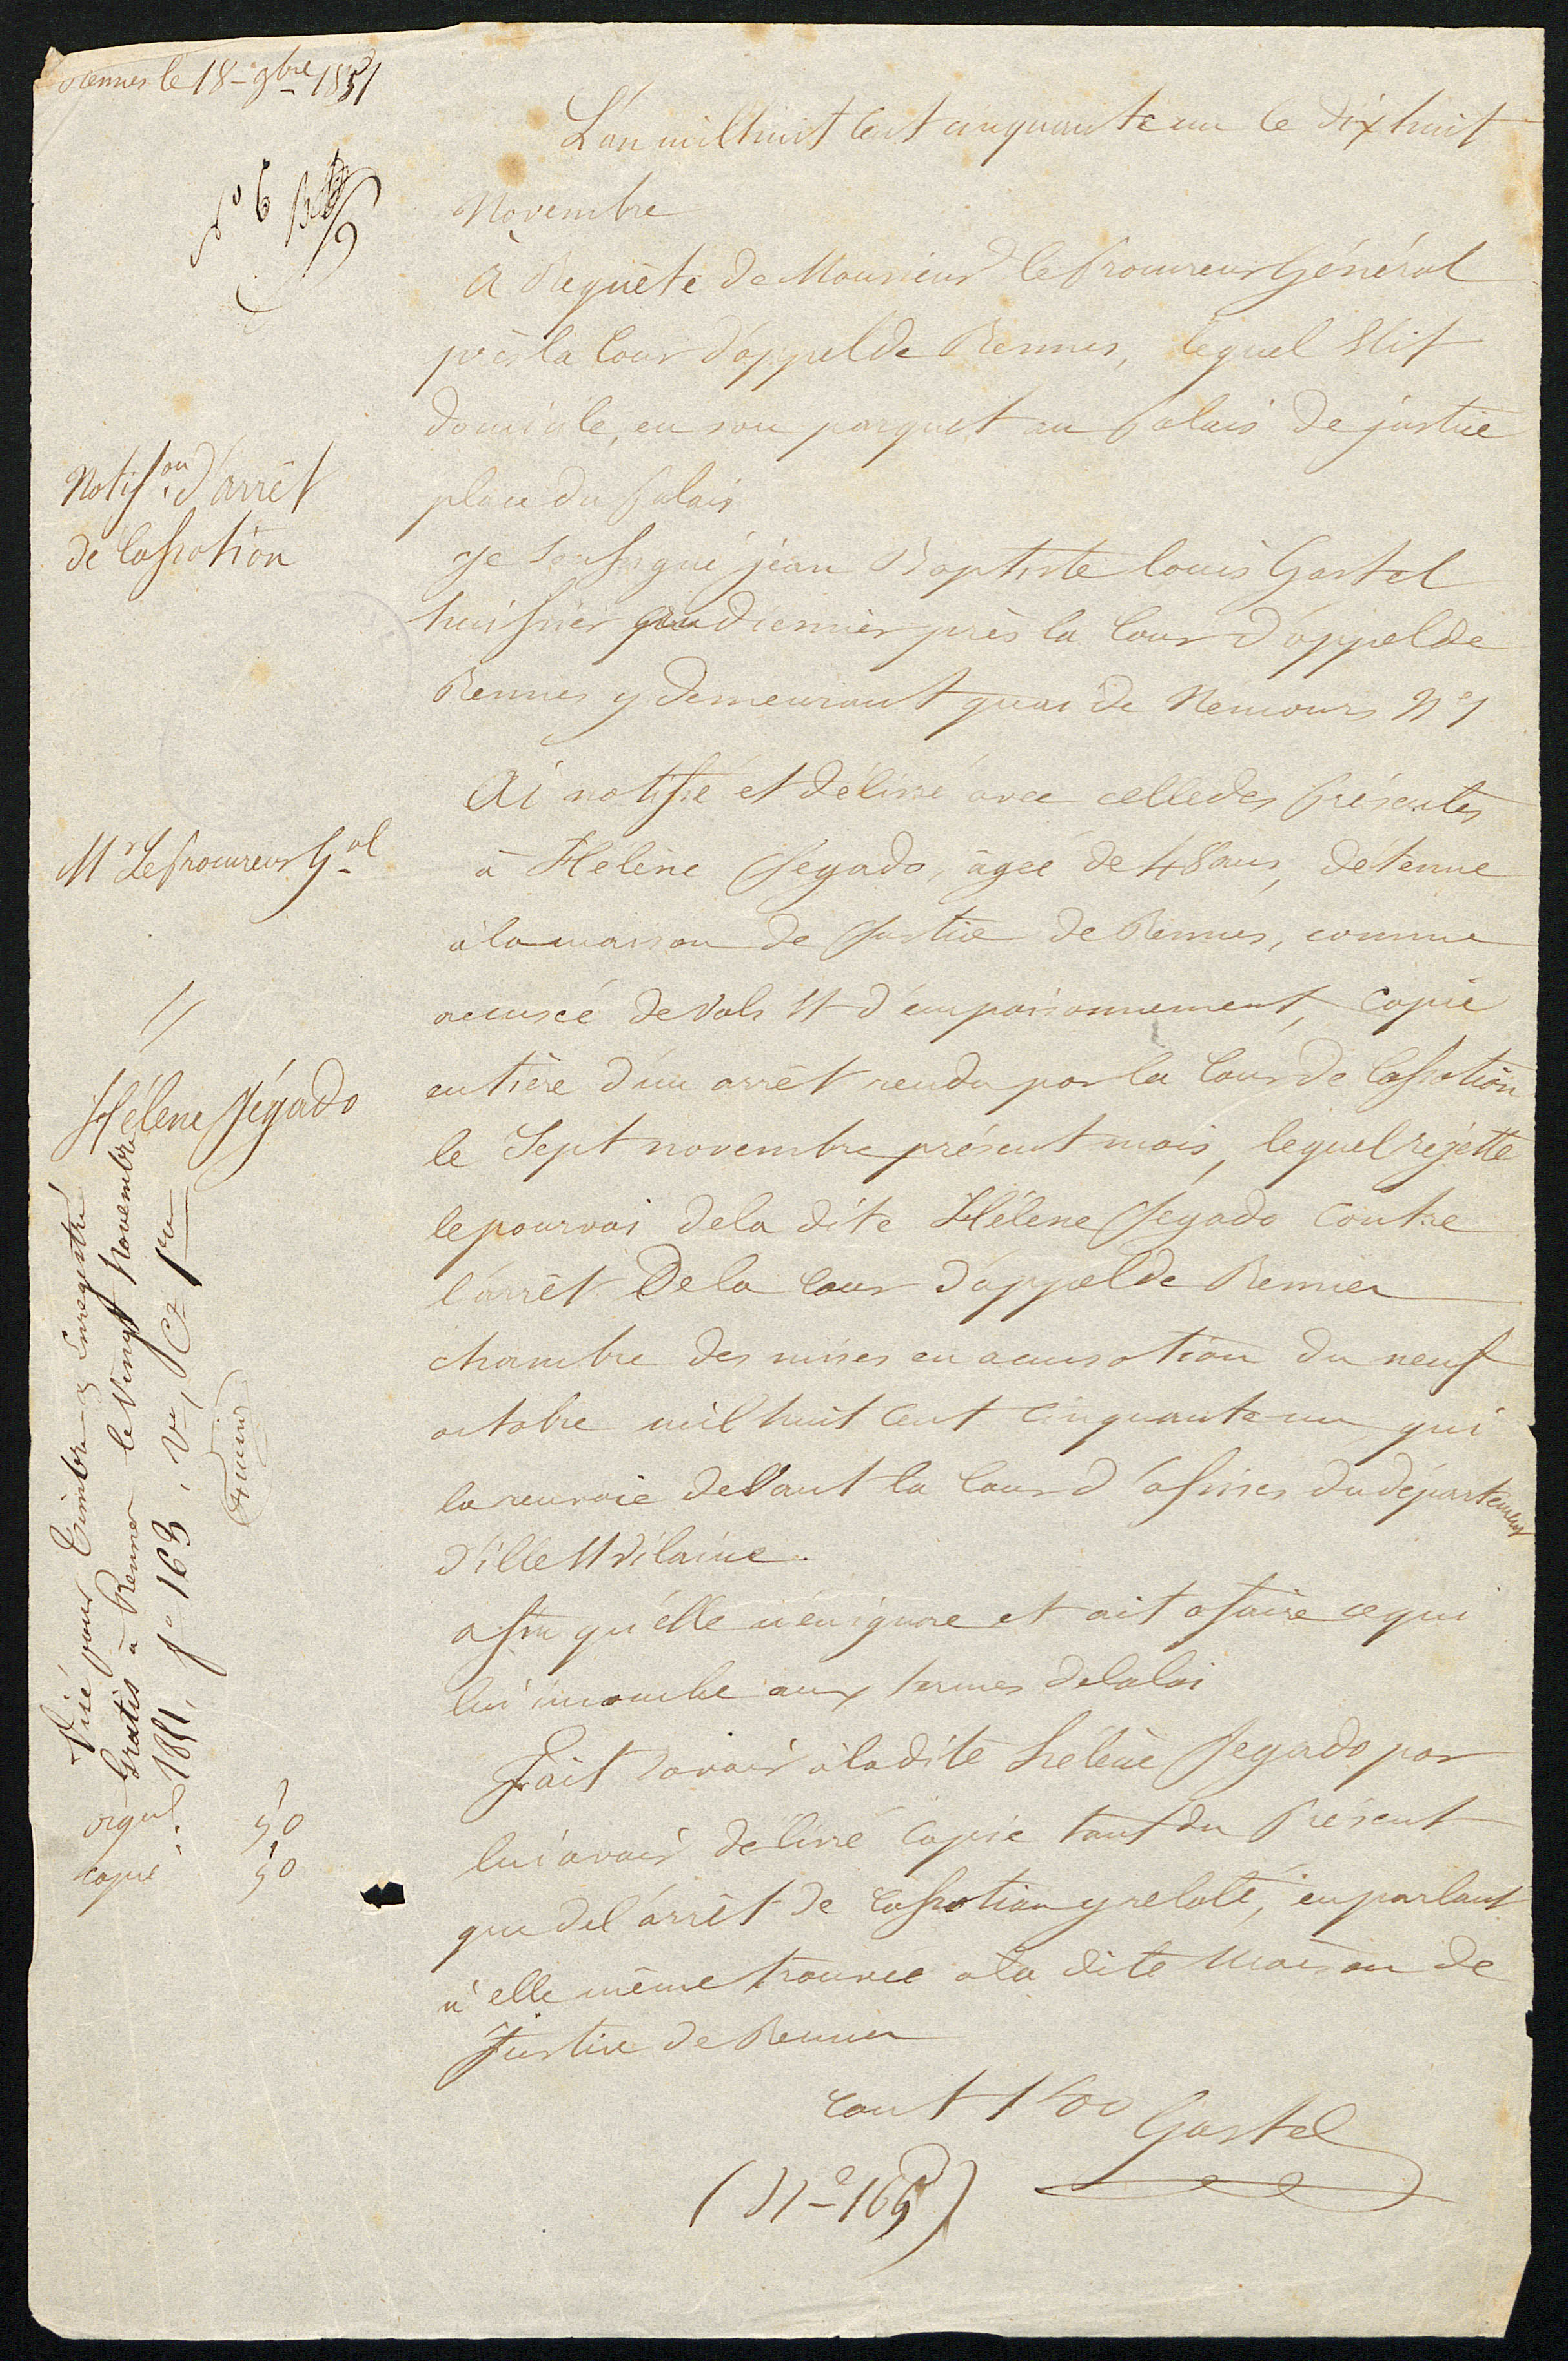 Rennes le 18 9bre 1851
Notifon d'arrêt
de Cassation
Mr Le procureur Gal
//
Hélene Jégado
Visé pour Timbre & Enregistré
Gratis à Rennes le Vingt Novembre
1851, fo 163, Vo, Ce 1re
orignl : 50
copie : 50
L'an mil huit cent cinquante un le dix huit
Novembre
A Requête de Monsieur le procureur Général
près la Cour d'appel de Rennes, lequel Elit
domicile, en son parquet au palais de justice
place du palais
Je soussigné jean Baptiste louis Gastel
huissier audiencier près la Cour d'appel de
Rennes y demeurant quai de Nemours No 1
Ai notifié et délivré avec celle des présentes
à Hélène Jegado, agée de 48 ans, detenue
à la maison de Justice de Rennes, comme
accusée de Vols Et d'empoisonnement, Copie
entière d'un arrêt rendu par la Cour de Cassation
le Sept novembre présent mois, lequel rejette
le pourvoi de la dite Hélene Jégado Contre
l'arrêt De la Cour d'appel de Rennes
chambre des mises en accusation du neuf
octobre mil huit Cent Cinquante un qui
la renvoie deVant la Cour d'assises du département
d'ille Et Vilaine.
afin qu'elle n'en ignore et ait a faire ce qui
lui incombe aux termes de la loi
Fait savoir à la dite hélène Jegado par
lui avoir délivré Copie tant du présent
que de l'arrêt de Cassation y relaté, en parlant
à elle même trouvée a la dite Maison de
Justice de Rennes
Cout 1f 00 Gastel
(No 165)